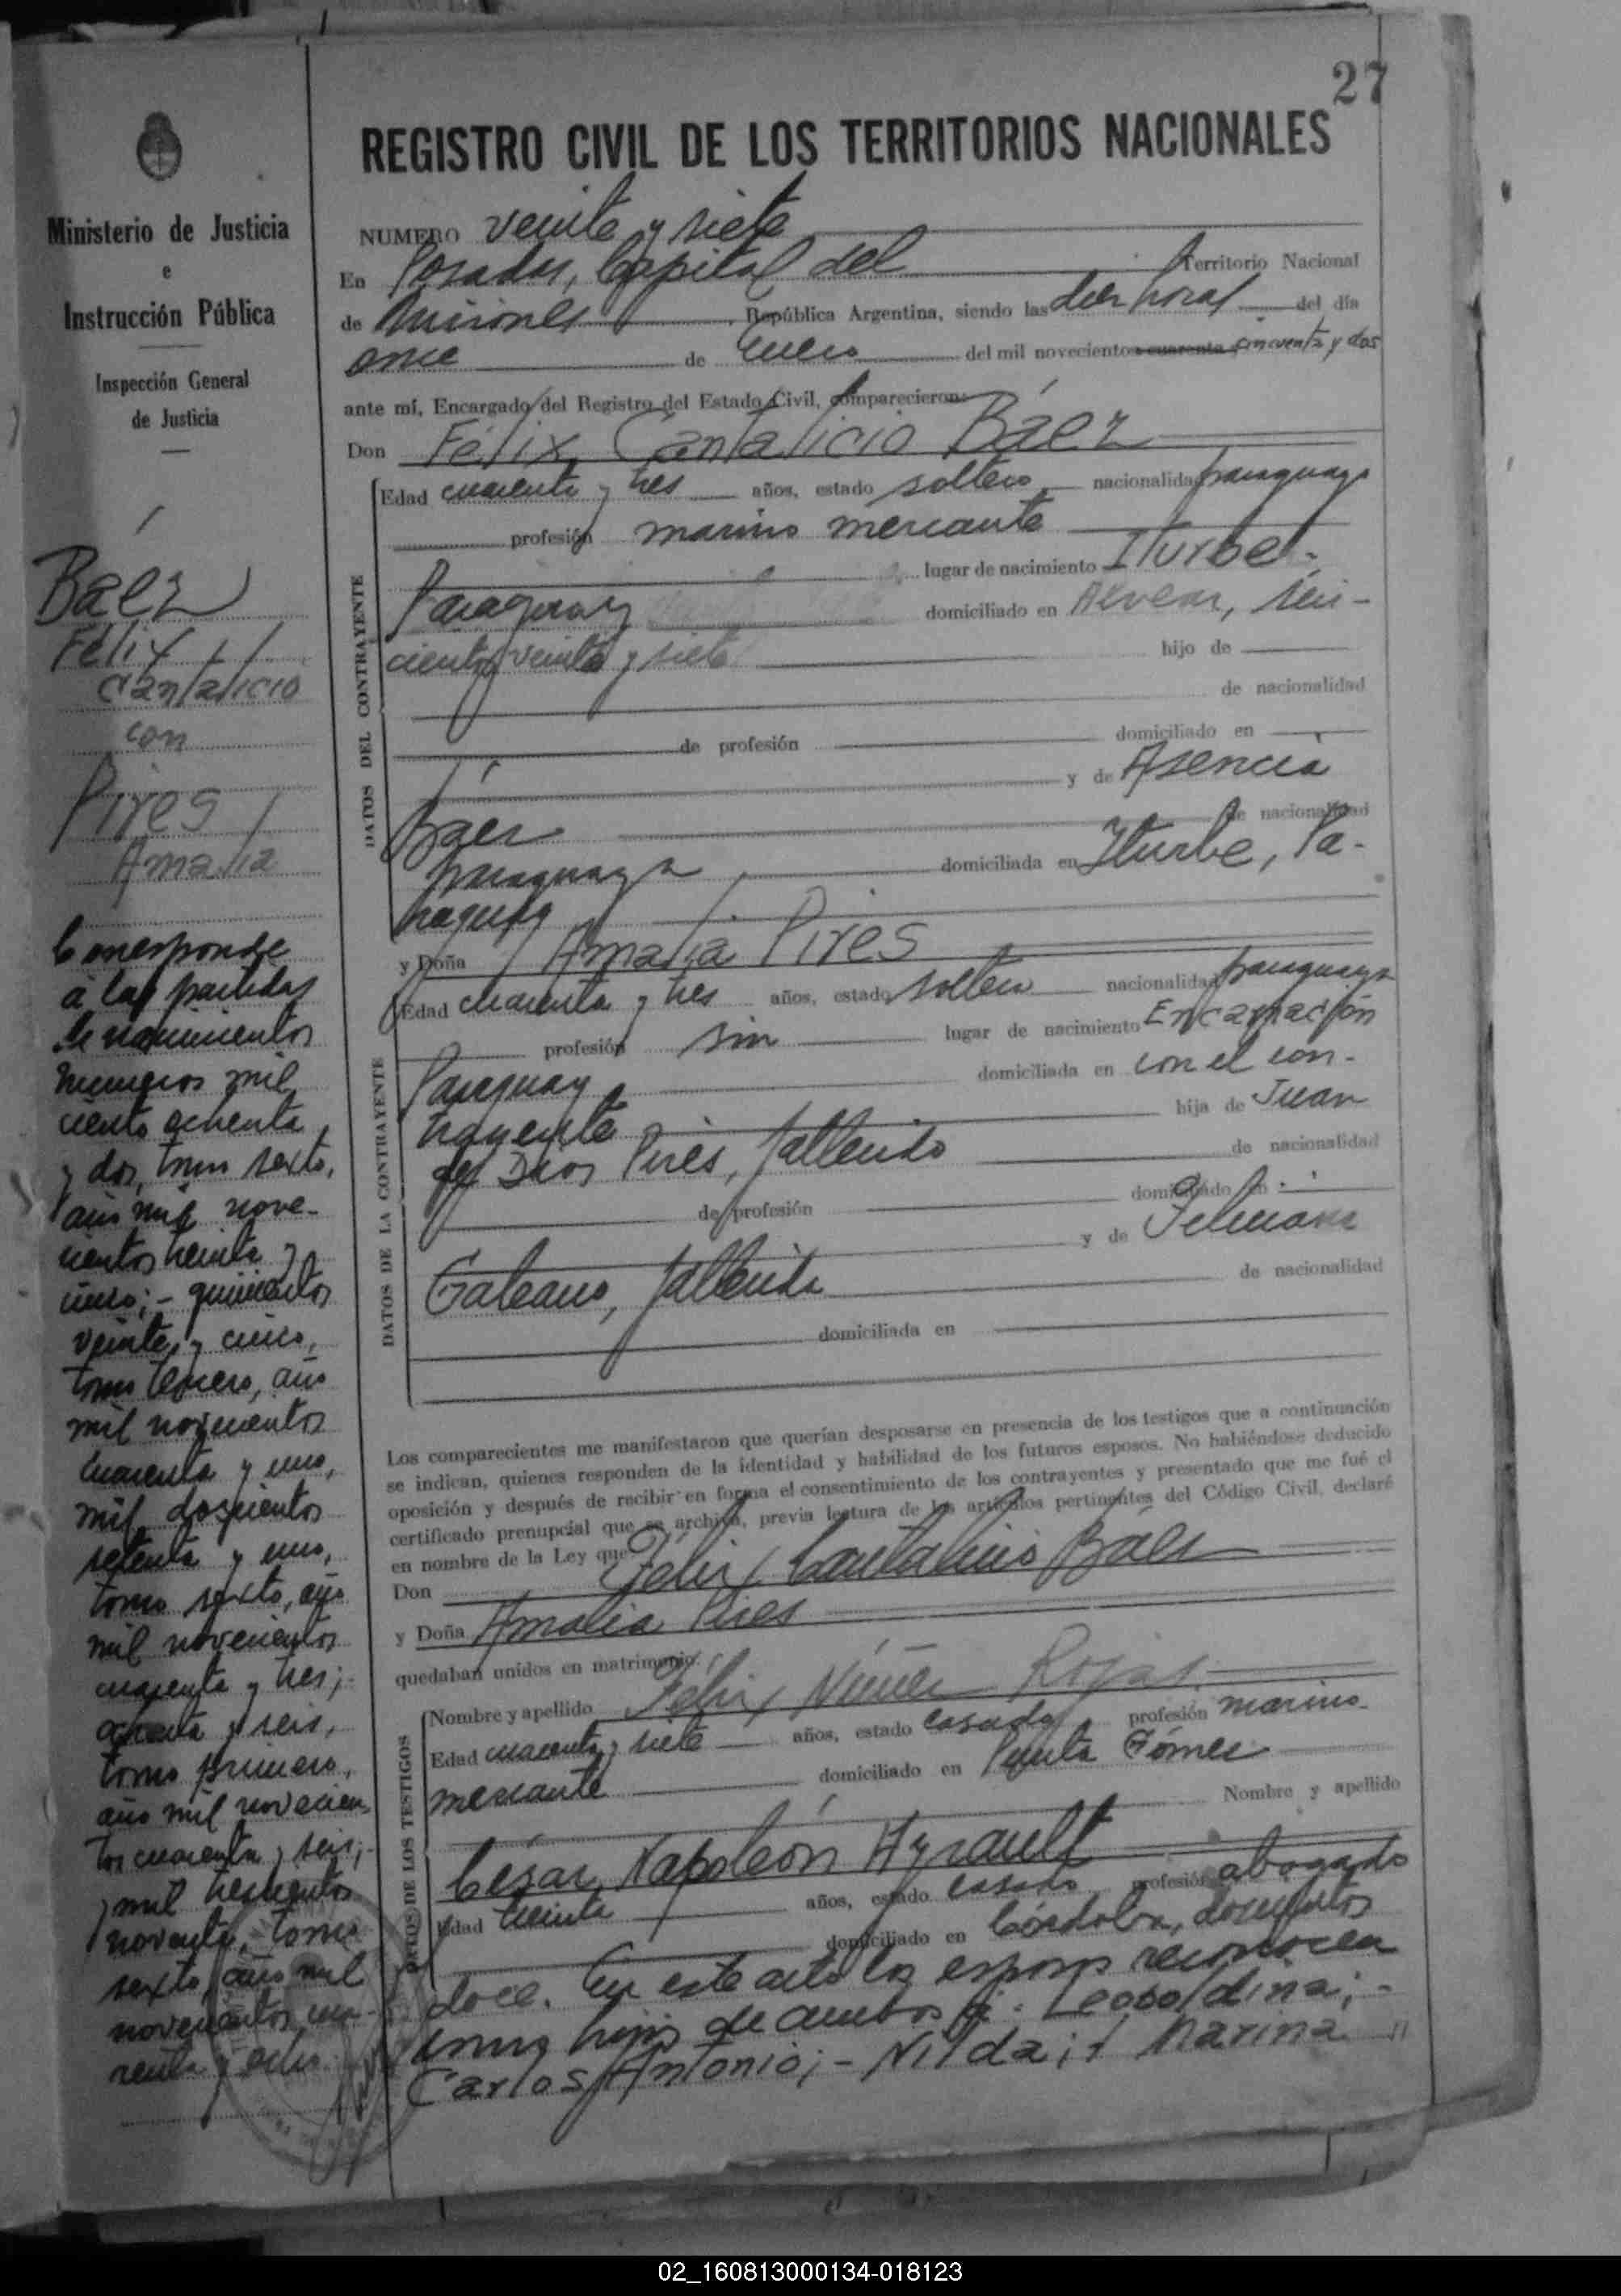 27
REGISTRO CIVIL DE LOS TERRITORIOS NACIONALES
Ministerio de Justicia
e
Instrucción Pública
Inspección General
de Justicia
Báez
Félix
Cantalicio
con
Pires
Amalia
Corresponde
a las partidas
de nacimientos
números mil
ciento ochenta
y dos, tomo sexto,
año mil nove-
cientos treinta y
cinco; - quinientos
veinte y cinco,
tomo tercero, año
mil novecientos
cuarenta y uno,
mil doscientos
setenta y uno,
tomo sexto, año
mil novecientos
cuarenta y tres; -
ochenta y seis,
tomo primero,
año mil novecien
tos cuarenta y seis; -
y mil trescientos
noventa, tomo
sexto, año mil
novecientos cua-
renta y ocho.
NUMERO veinte y siete
En Posadas, Capital del Territorio Nacional
de Misiones, República Argentina, siendo las diez horas del día
once de Enero del mil novecientos cuarenta cincuenta y dos
ante mí, Encargado del Registro del Estado Civil, comparecieron:
Don Félix Cantalicio Báez
DATOS DEL CONTRAYENTE
Edad cuarenta y tres años, estado soltero nacionalidad paraguayo
profesión marino mercante
lugar de nacimiento Iturbe.
Paraguay domiciliado en Alvear, seis-
cientos veinte y siete hijo de
de nacionalidad
de profesión domiciliado en
y de Asencia
Báez de nacionalidad
paraguaya, domiciliada en Iturbe, Pa-
raguay
y Doña Amalia Pires
DATOS DE LA CONTRAYENTE
Edad cuarenta y tres años, estado soltera nacionalidad paraguaya
profesión sin lugar de nacimiento Encarnación
Paraguay domiciliada en con el con-
trayente hija de Juan
de Dios Pires, fallecido de nacionalidad
de profesión domiciliado en
y de
Galeano, fallecida de nacionalidad
domiciliada en
Los comparecientes me manifestaron que querían desposarse en presencia de los testigos que a continuación
se indican, quienes responden de la identidad y habilidad de los futuros esposos. No habiéndose deducido
oposición y después de recibir en forma el consentimiento de los contrayentes y presentado que me fué el
certificado prenupcial que se archiva, previa lectura de los artículos pertinentes del Código Civil, declaré
en nombre de la Ley que
Don Félix Cantalicio Báez
y Doña Amalia Pires
quedaban unidos en matrimonio.
DATOS DE LOS TESTIGOS
Nombre y apellido Félix Núñez Rojas.
Edad cuarenta y siete años, estado casado profesión marino
mercante domiciliado en Punta Gómez
Nombre y apellido
César Napoleón Ayrault
Edad treinta años, estado casado profesión abogado
domiciliado en Córdoba, doscientos
doce. En este acto los esposos reconocen
como hijos de ambos a: Leopoldina; -
Carlos Antonio; - Nilda; - Marina
02_160813000134-018123